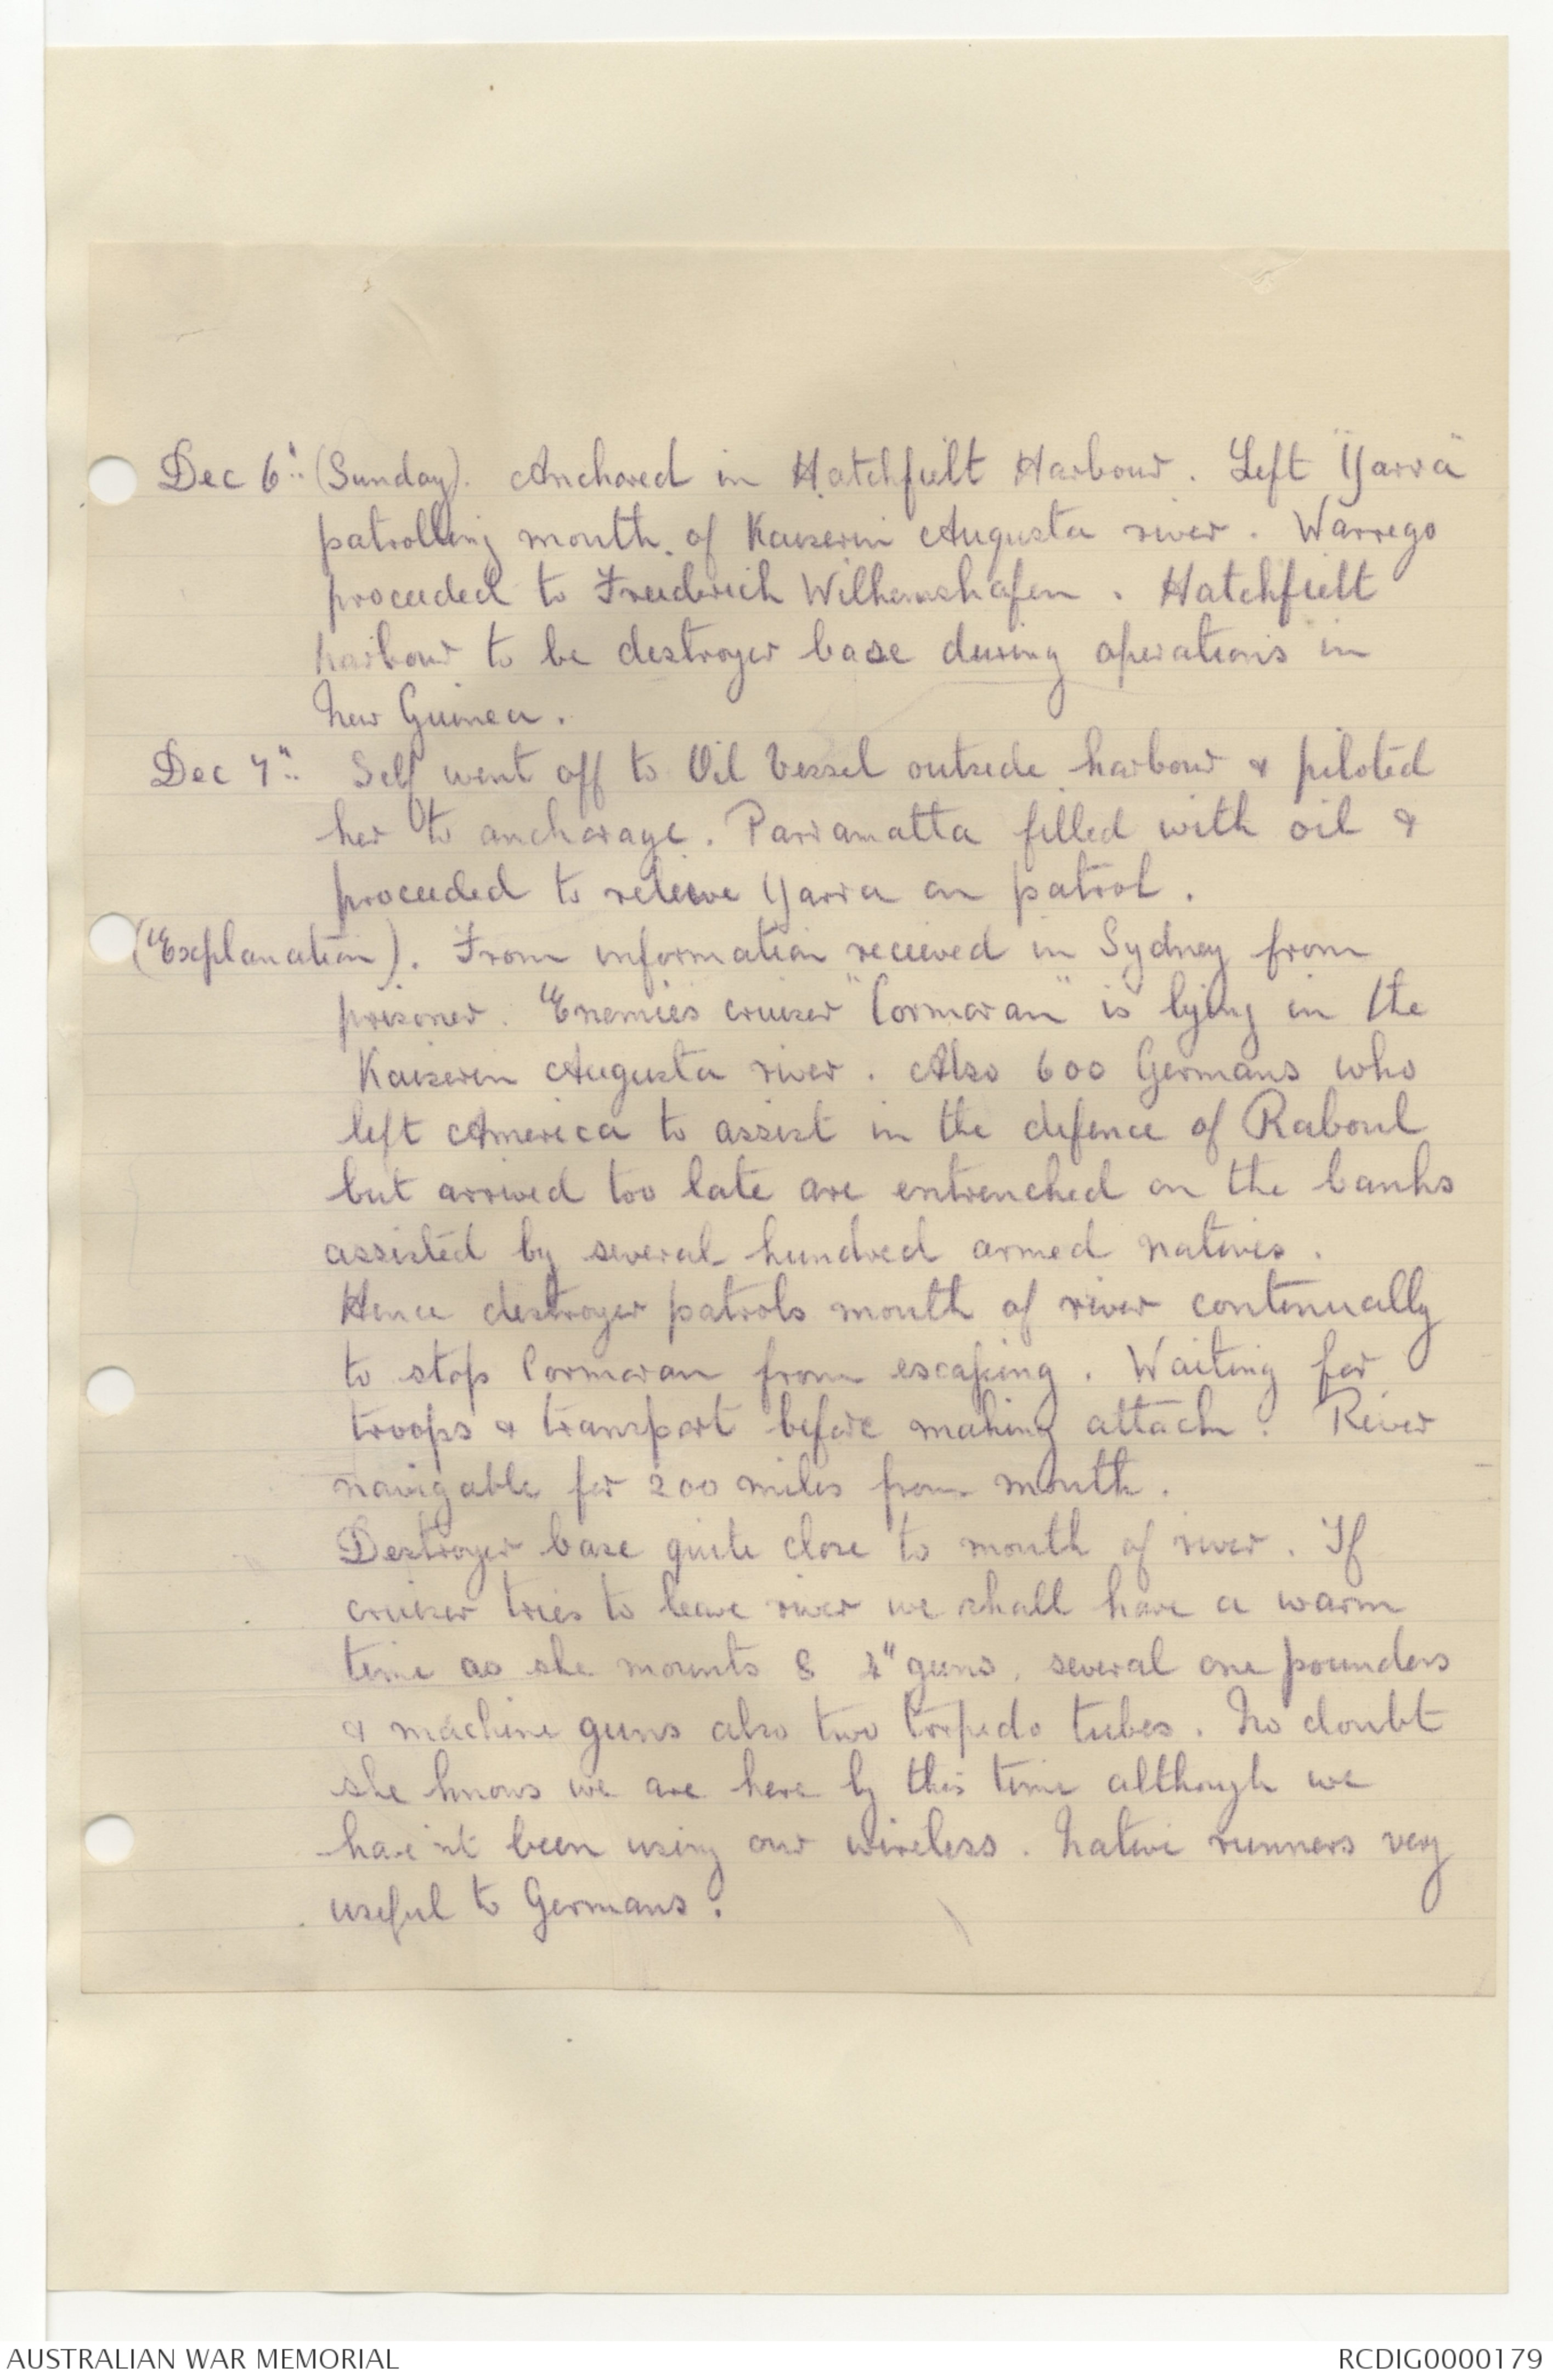 Dec 6th (Sunday). Anchored in Hatchfielt Harbour. Left "Yarra"
patrolling mouth of Kaiserin Augusta river. Warrego
proceeded to Freiderich Wilhemshafen. Hatchfielt
harbour to be destroyer base during operations in
New Guinea.
Dec 7th. Self went off to Oil Vessel outside harbour & piloted
her to anchorage. Parramatta filled with oil &
proceeded to relieve Yarra on patrol.
(Explanation). From information received in Sydney from
prisoner. Enemies cruiser "Cormoran" is lying in the
Kaiserin Augusta river. Also 600 Germans who
left America to assist in the defence of Raboul
but arrived too late are entrenched on the banks
assisted by several hundred armed natives.
Hence destroyer patrols mouth of river continually
to stop Cormoran from escaping. Waiting for
troops & transport before making attack. River
navigable for 200 miles from mouth.
Destroyer base quite close to mouth of river. If
cruiser tries to leave river we shall have a warm
time as she mounts 8 4" guns, several one pounders
& machine guns also two torpedo tubes. No doubt
she knows we are here by this time although we
have'nt been using our wireless. Native runners very
useful to Germans.
AUSTRALIAN WAR MEMORIAL
RCDIG0000179